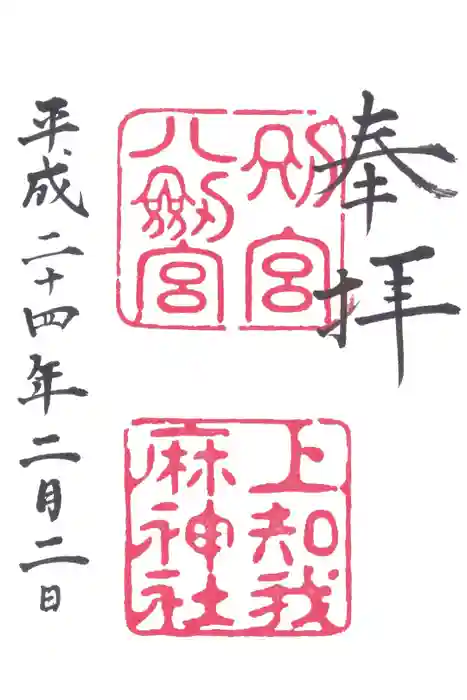 奉拝
別宮
八剱宮
上知我
麻神社
平成二十四年二月二日